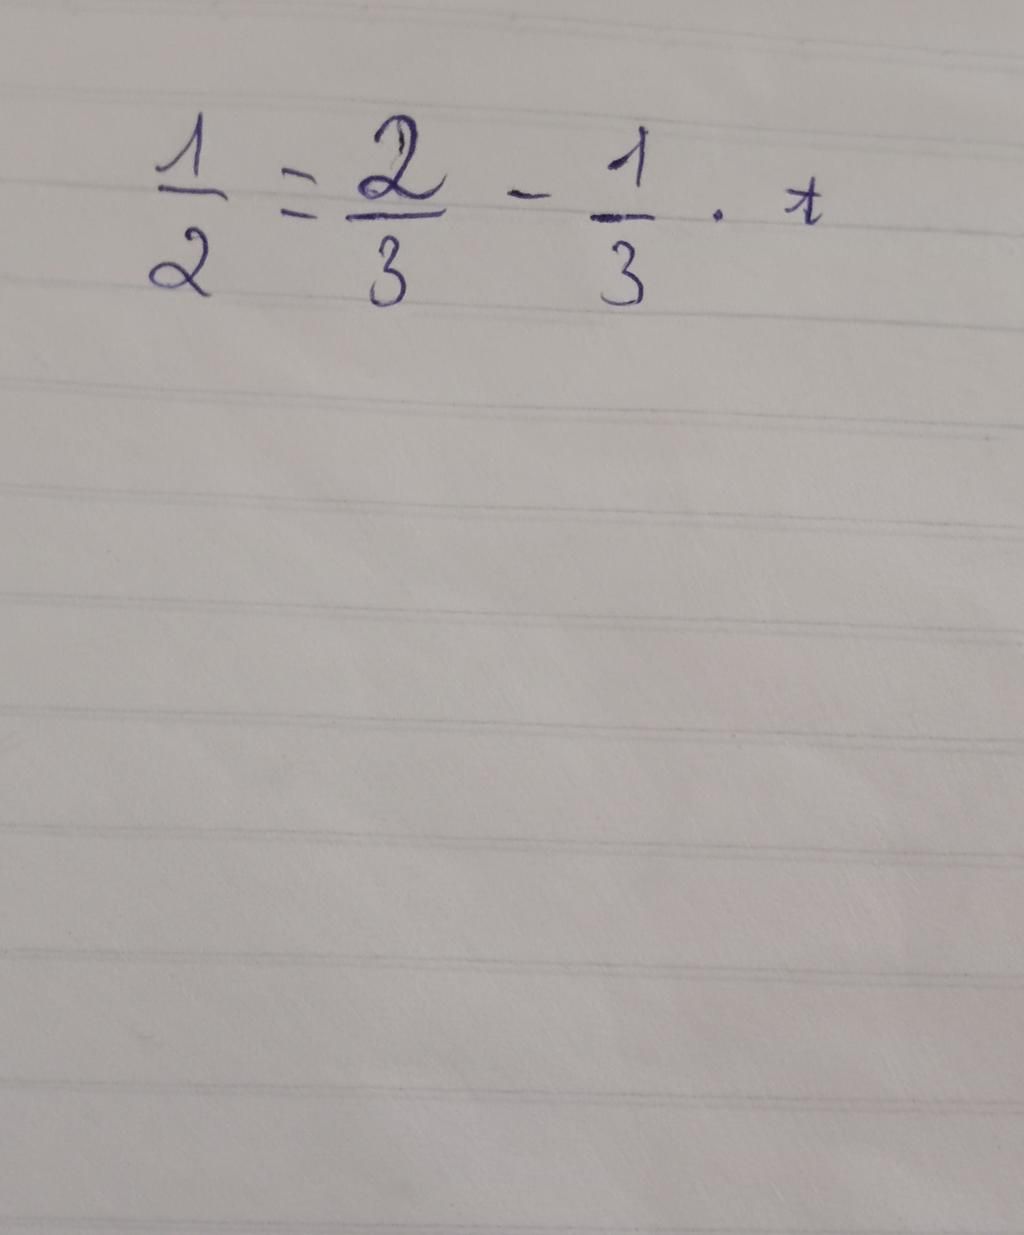 1/2 = 2/3 - 1/3 · t